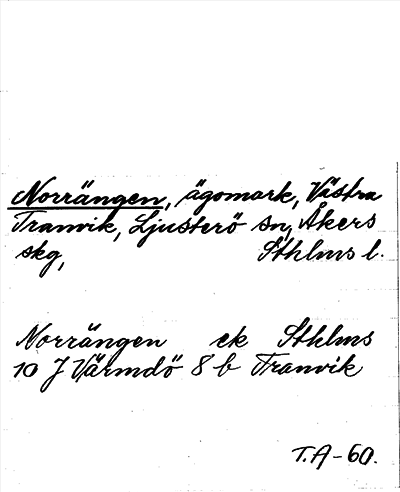 Norrängen, ägomark, Västra
Tranvik, Ljusterö sn, Åkers
skg, Sthlms l.
Norrängen ek Sthlms
10 J Värmdö 8 b Tranvik
T.A-60.